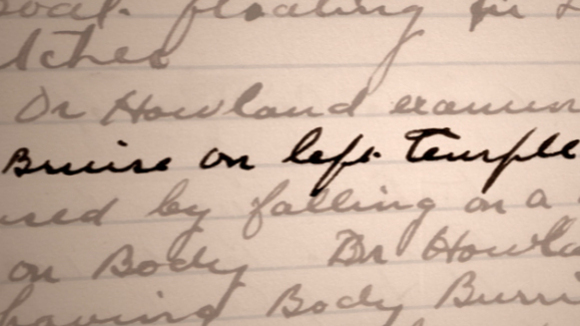 floating in
Dr Howland examin
Bruise on left Temple
used by falling on a
on Body Dr Howla
having Body Burri